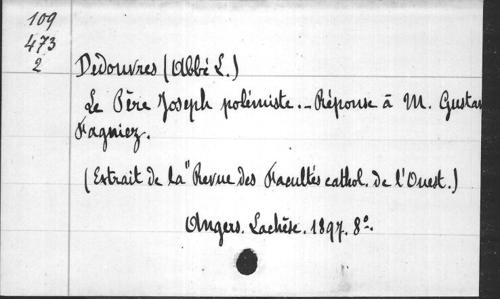 109
473
2
Dedouvres (Abbé L.)
Le Père Joseph polémiste. - Réponse à M. Gustav
Fagniez.
(Extrait de la "Revue des Facultés cathol. de l'Ouest.)
Angers. Lachèse. 1897. 8º.